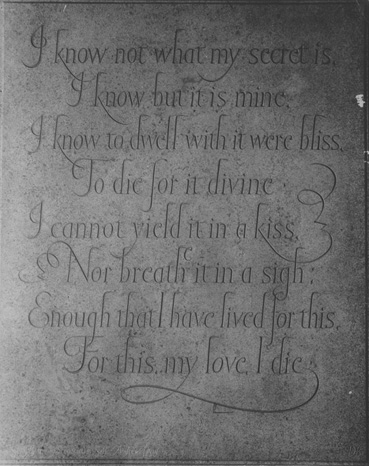 I know not what my secret is,
I know but it is mine,
I know to dwell with it were bliss,
To die for it divine :
I cannot yield it in a kiss,
Nor breathe it in a sigh ;
Enough that I have lived for this,
For this, my love, I die :